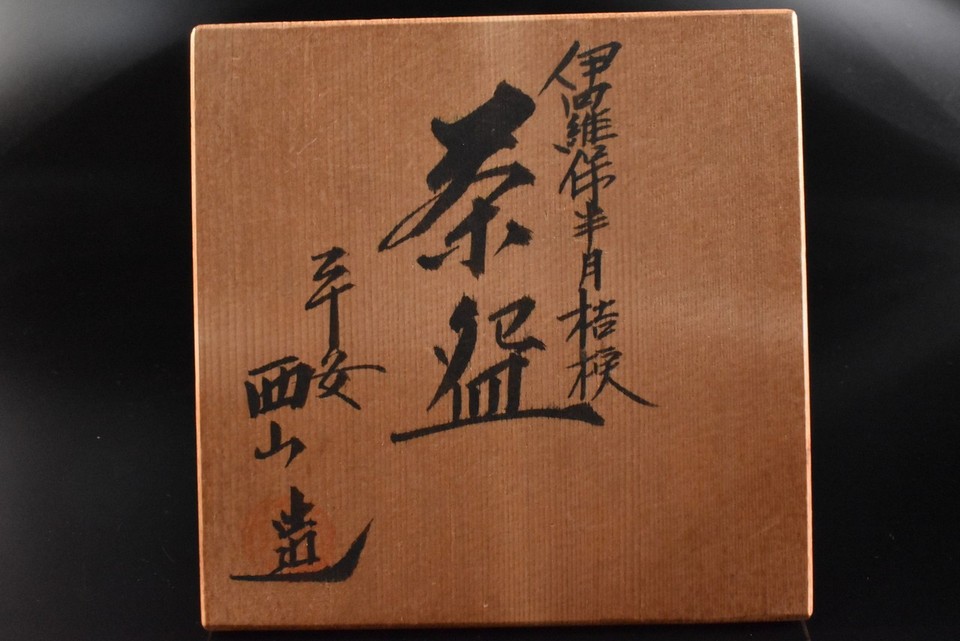 伊羅保半月桔梗
茶盌
平安
西山造